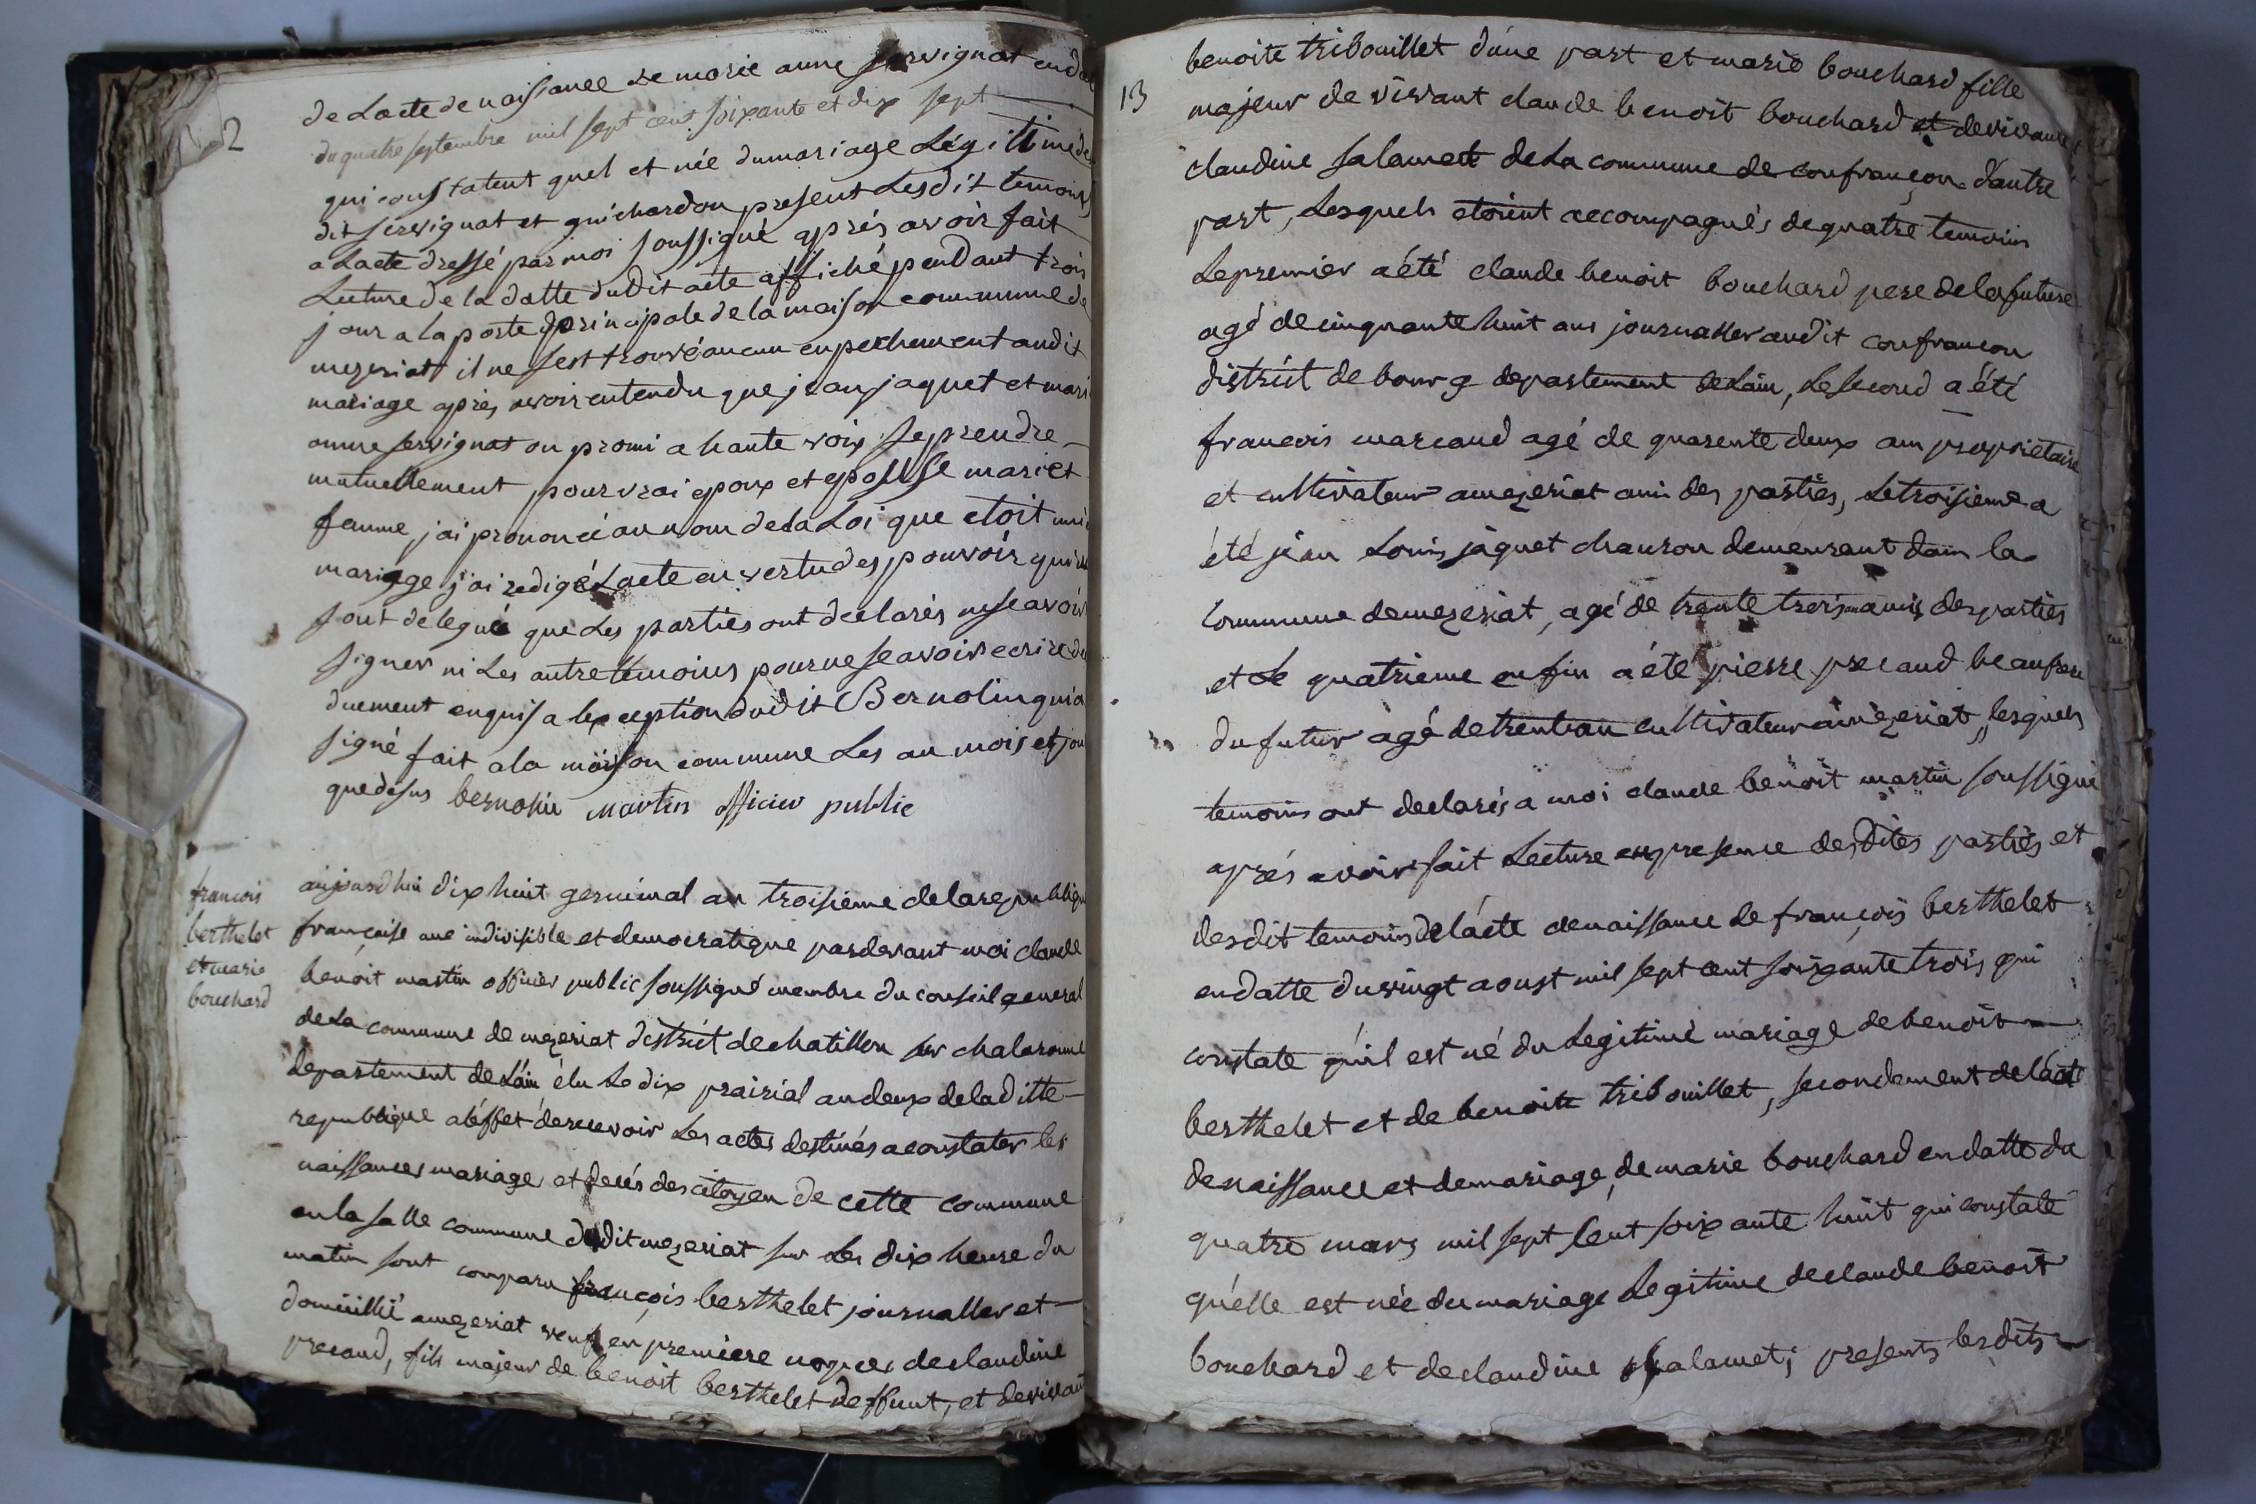 2
de Lacte de naissance de marie anne servignat en da
du quatre septembre mil sept cent soixante et dix sept
qui constatent quel et née du mariage Légitime de
dit servignat et guichardon present Lesdit temoins
a Lacte dressé par moi soussigné après avoir fait
Lecture de la datte dudit acte affiché pendant trois
jour a la porte principale de la maison commune de
mezeriat il ne sest trouvé aucun enpechement audit
mariage après avoir entendu que jean jaquet et mari
anne servignat on promi a haute voix se prendre
mutuellement pour vrai epoux et epousse mari et
femme, jai prononcé au nom de la Loi que etoit uni
mariage j'ai redigé Lacte en vertu des pouvoir qui
sont delegué que Les parties ont declarés ne scavoir
signer ni Les autre temoins pour ne scavoir ecrire de
duement enquis a lexception dudit Bernolin qui a
signé fait a la maison commune Les an mois et jour
que desus bernolin martin officier public
françois
berthelet
et marie
bouchard
aujourdhui dix huit germinal an troisieme de la republique
française une indivisible et democratique pardevant moi claude
benoit martin officier public soussigné membre du conseil general
de La commune de mezeriat district de chatillon sur chalaronne
departement de Láin élu Le dix prairial an deux de la ditte
republique a léffet de recevoir Les actes destinés a constater les
naissances mariage et decés des citoyen de cette commune
en la salle commune dudit mezeriat sur Les dix heure du
matin sont comparu françois berthelet journallier et
domicillié a mezeriat veuf en premiere nopces de claudine
precaud, fils majeur de benoit berthelet deffunt, et de vivant
13
benoite tribouillet dúne part et marie bouchard fille
majeur de vivant claude benoit bouchard et de vivante
claudine salamet de La commune de confrançon dáutre
part, Lesquels etoient accompagnés de quatre temoins
Le premier a été claude benoit bouchard pere de la future
agé de cinquante huit ans journallier audit confrancon
district de bourg departement de Láin, Le second a été
francois marcaud agé de quarente deux ans proprietaire
et cultivateur a mezeriat ami des parties, Le troisieme a
été jean Louis jaquet charon demeurant dans la
commune de mezeriat, agé de trente trois ans amis des parties
et Le quatrieme enfin a été pierre precaud beaufrere
du futur agé de trent an cultivateur a mezeriat, lesquels
temoins ont declarés a moi claude benoit martin soussigné
aprés avoir fait Lecture en presence desdites parties et
desdit temoins de lácte de naissance de françois berthelet
en datte du vingt aoust mil sept cent soixante trois qui
constate quíl est né du Legitime mariage de benoit
berthelet et de benoite tribouillet, secondement de lácte
de naissance et de mariage de marie bouchard en datte du
quatre mars mil sept Cent soixante huit qui constate
quélle est née du mariage Legitime de claude benoit
bouchard et de claudine salamet; presents lesdits